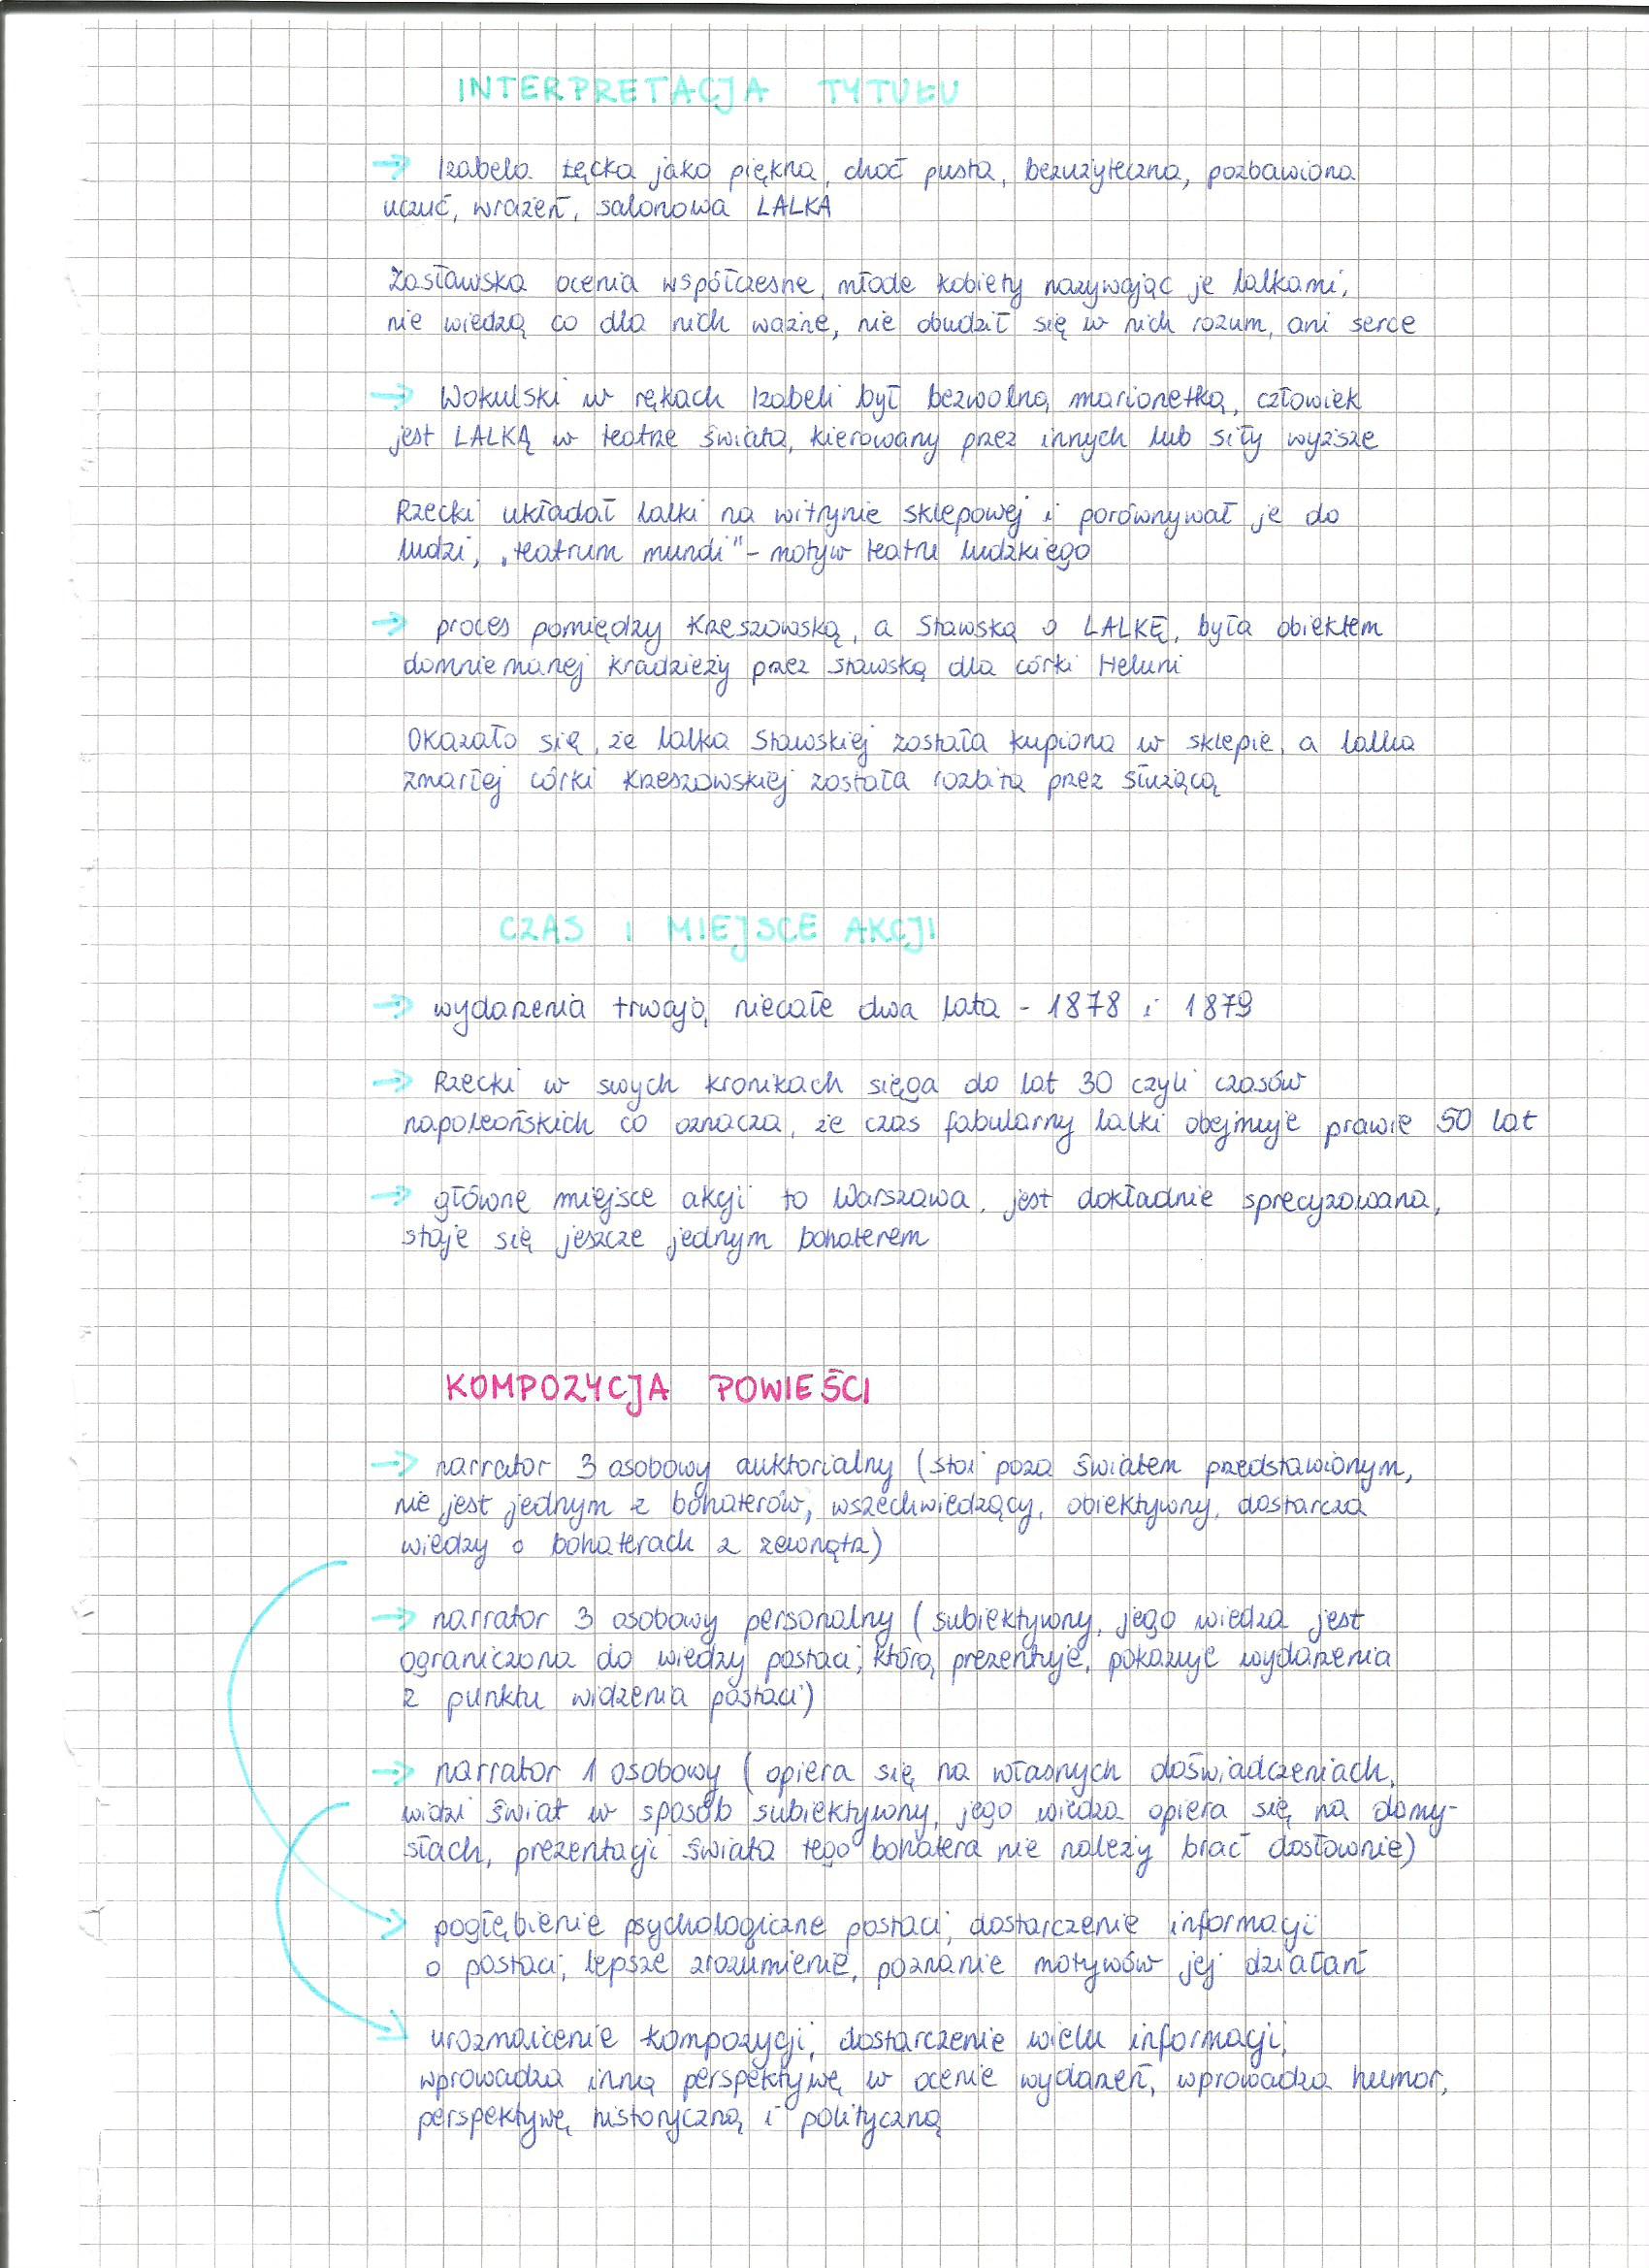 INTERPRETACJA TYTUŁU
→ Izabela Łęcka jako piękna, choć pusta, bezużyteczna, pozbawiona
uczuć, wrażeń, salonowa LALKA
Zasławska ocenia współczesne, młode kobiety nazywając je lalkami,
nie wiedzą co dla nich ważne, nie obudził się w nich rozum, ani serce
→ Wokulski w rękach Izabeli był bezwolną marionetką, człowiek
jest LALKĄ w teatrze świata, kierowany przez innych lub siły wyższe
Rzecki układał lalki na witrynie sklepowej i porównywał je do
ludzi, „teatrum mundi" - motyw teatru ludzkiego
→ proces pomiędzy Krzeszowską, a Stawską o LALKĘ, była obiektem
domniemanej kradzieży przez Stawską dla córki Heluni
Okazało się, że lalka Stawskiej została kupiona w sklepie, a lalka
zmarłej córki Krzeszowskiej została rozbita przez służącą
CZAS I MIEJSCE AKCJI
→ wydarzenia trwają niecałe dwa lata - 1878 i 1879
→ Rzecki w swych kronikach sięga do lat 30 czyli czasów
napoleońskich co oznacza, że czas fabularny lalki obejmuje prawie 50 lat
→ główne miejsce akcji to Warszawa, jest dokładnie sprecyzowana,
staje się jeszcze jednym bohaterem
KOMPOZYCJA POWIEŚCI
→ narrator 3 osobowy auktorialny (stoi poza światem przedstawionym,
nie jest jednym z bohaterów, wszechwiedzący, obiektywny, dostarcza
wiedzy o bohaterach z zewnątrz)
→ narrator 3 osobowy personalny (subiektywny, jego wiedza jest
ograniczona do wiedzy postaci, którą prezentuje, pokazuje wydarzenia
z punktu widzenia postaci)
→ narrator 1 osobowy (opiera się na własnych doświadczeniach,
widzi świat w sposób subiektywny, jego wiedza opiera się na domy-
słach, prezentacji świata tego bohatera nie należy brać dosłownie)
→ pogłębienie psychologiczne postaci, dostarczenie informacji
o postaci, lepsze zrozumienie, poznanie motywów jej działań
→ urozmaicenie kompozycji, dostarczenie wielu informacji,
wprowadza inną perspektywę w ocenie wydarzeń, wprowadza humor,
perspektywę historyczną i polityczną